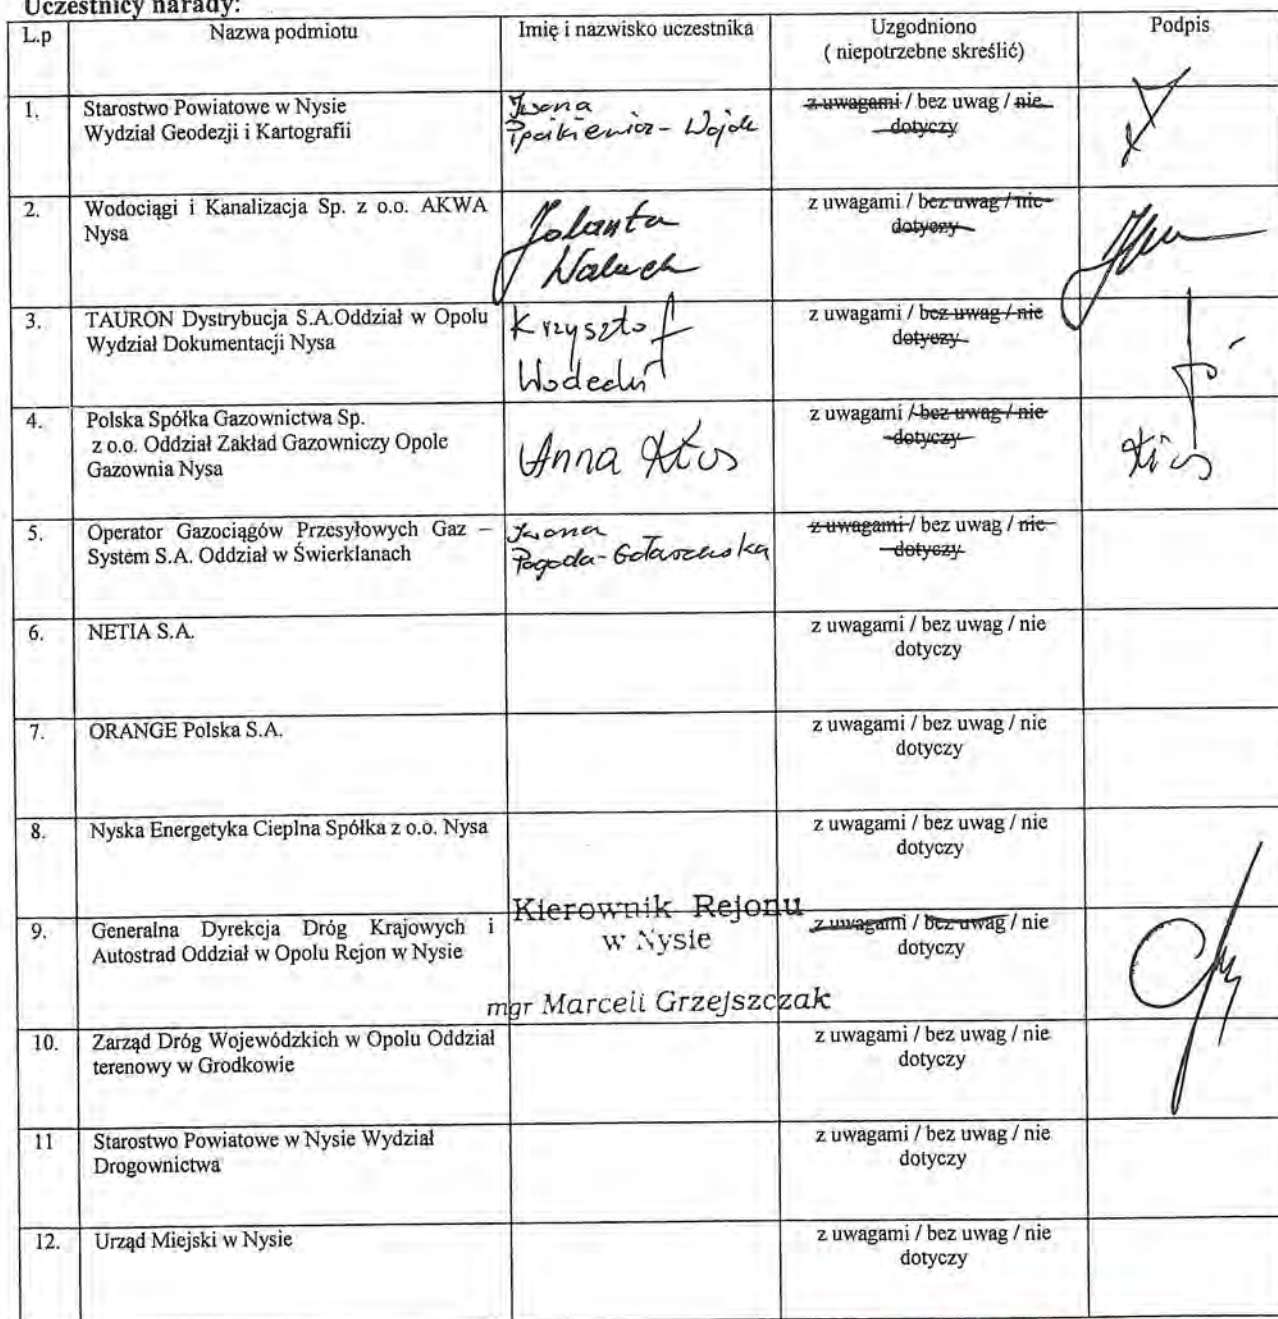 Uczestnicy narady:
L.p
Nazwa podmiotu
Imię i nazwisko uczestnika
Uzgodniono
( niepotrzebne skreślić)
Podpis
1.
Starostwo Powiatowe w Nysie
Wydział Geodezji i Kartografii
Iwona
z uwagami / bez uwag / nie
dotyczy
2.
Wodociągi i Kanalizacja Sp. z o.o. AKWA
Nysa
Jolanta
z uwagami / bez uwag / nie
dotyczy
3.
TAURON Dystrybucja S.A.Oddział w Opolu
Wydział Dokumentacji Nysa
Krzysztof
z uwagami / bez uwag / nie
dotyczy
4.
Polska Spółka Gazownictwa Sp.
z o.o. Oddział Zakład Gazowniczy Opole
Gazownia Nysa
Anna
z uwagami / bez uwag / nie
dotyczy
5.
Operator Gazociągów Przesyłowych Gaz –
System S.A. Oddział w Świerklanach
Iwona
z uwagami / bez uwag / nie
dotyczy
6.
NETIA S.A.
z uwagami / bez uwag / nie
dotyczy
7.
ORANGE Polska S.A.
z uwagami / bez uwag / nie
dotyczy
8.
Nyska Energetyka Cieplna Spółka z o.o. Nysa
z uwagami / bez uwag / nie
dotyczy
9.
Generalna Dyrekcja Dróg Krajowych i
Autostrad Oddział w Opolu Rejon w Nysie
Kierownik Rejonu
w Nysie
mgr Marceli Grzejszczak
z uwagami / bez uwag / nie
dotyczy
10.
Zarząd Dróg Wojewódzkich w Opolu Oddział
terenowy w Grodkowie
z uwagami / bez uwag / nie
dotyczy
11
Starostwo Powiatowe w Nysie Wydział
Drogownictwa
z uwagami / bez uwag / nie
dotyczy
12.
Urząd Miejski w Nysie
z uwagami / bez uwag / nie
dotyczy